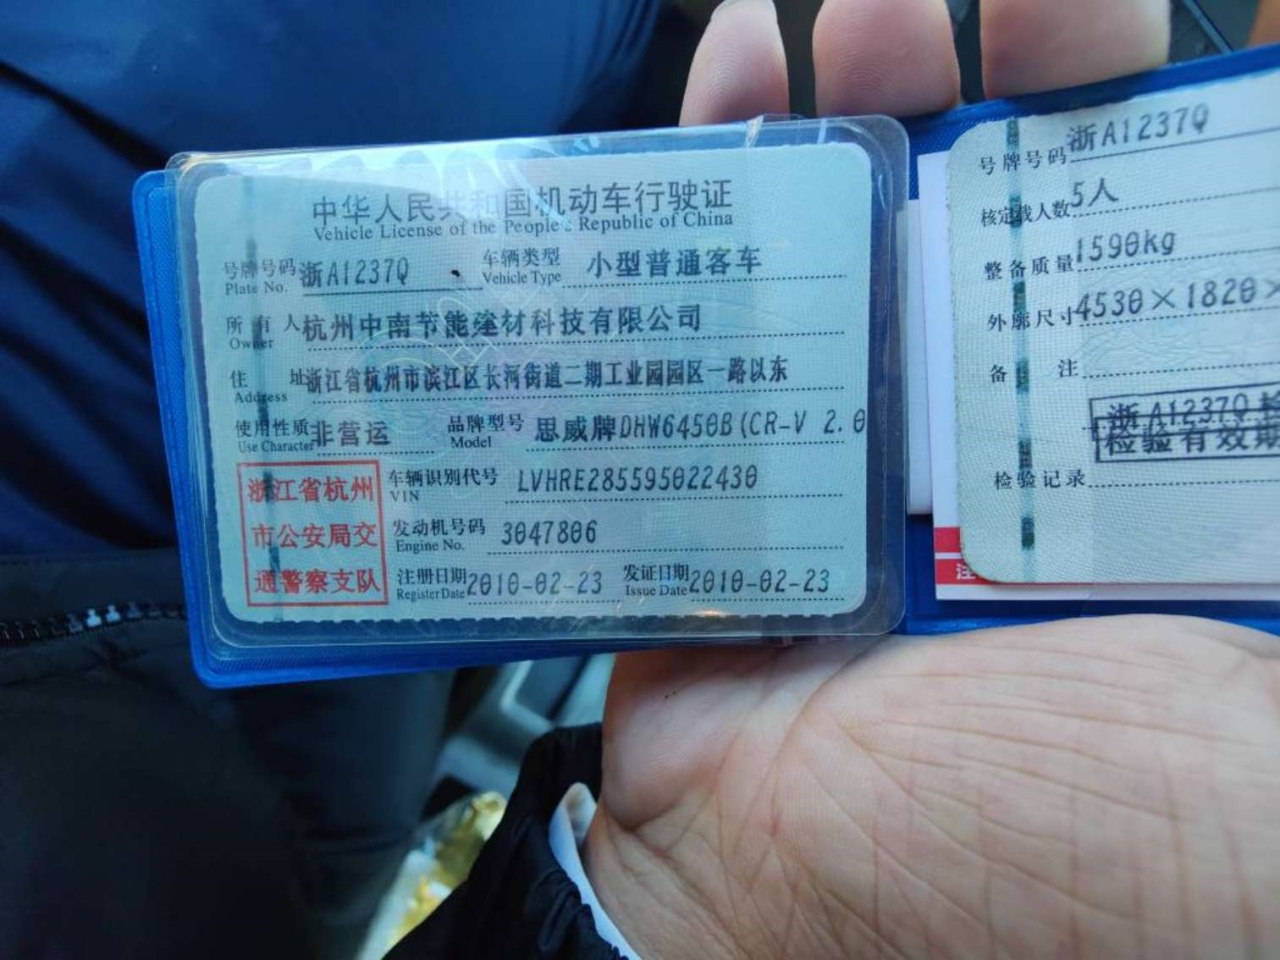 中华人民共和国机动车行驶证
Vehicle License of the People's Republic of China
号牌号码 浙A1237Q 车辆类型 小型普通客车
Plate No. Vehicle Type
所有人 杭州中南节能建材科技有限公司
Owner
住址 浙江省杭州市滨江区长河街道二期工业园园区一路以东
Address
使用性质 非营运 品牌型号 思威牌DHW6450B(CR-V 2.0
Use Character Model
浙江省杭州
市公安局交
通警察支队
车辆识别代号 LVHRE285595022430
VIN
发动机号码 3047806
Engine No.
注册日期 2010-02-23 发证日期 2010-02-23
Register Date Issue Date
号牌号码 浙A1237Q
核定载人数 5人
整备质量 1590kg
外廓尺寸 4530×1820×
备注
浙A1237Q
检验有效期
检验记录
注